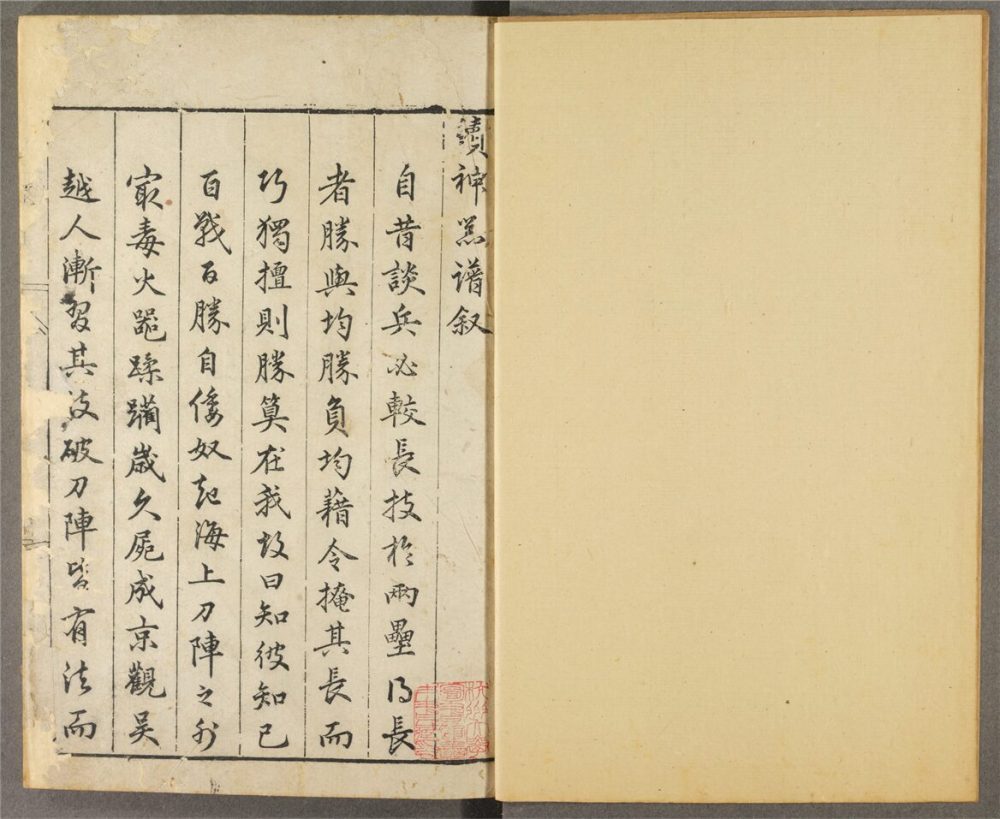 續神噐譜叙
自昔談兵必較長技於兩壘得長
者勝與均勝負均藉令掩其長而
巧獨擅則勝算在我故曰知彼知己
百戰百勝自倭奴起海上刀陣之外
最毒火噐蹂躪歲久屍成京觀吳
越人漸習其技破刀陣皆有法而